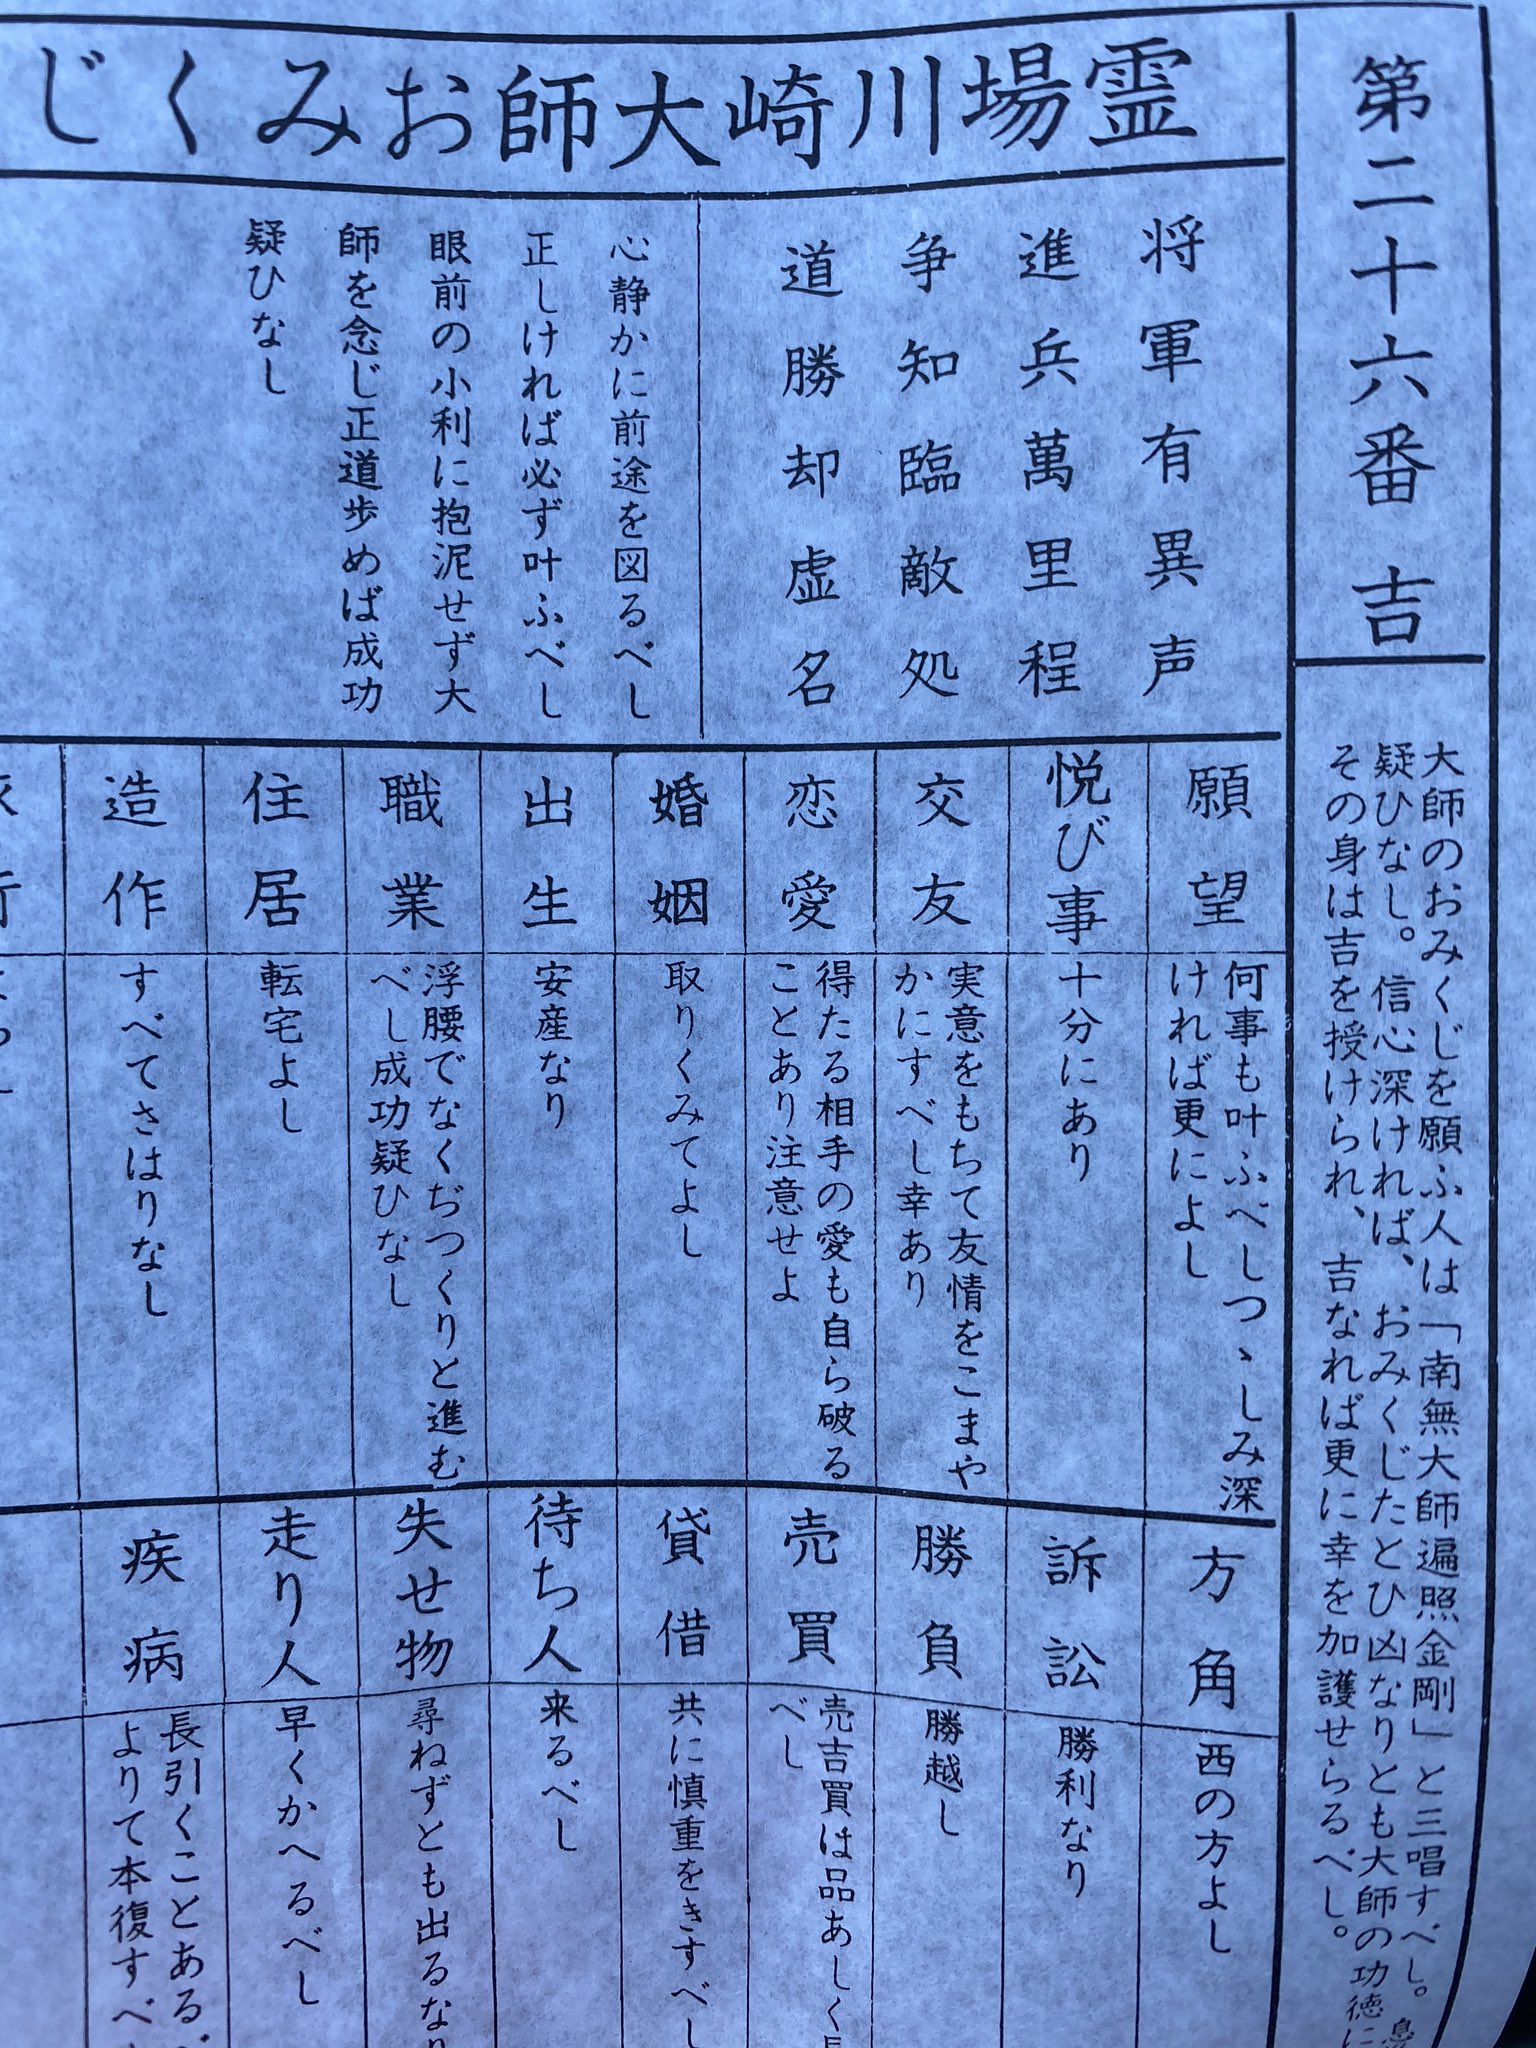 第二十六番 吉
大師のおみくじを願ふ人は「南無大師遍照金剛」と三唱すべし。
疑ひなし。信心深ければ、おみくじたとひ凶なりとも大師の功徳に
その身は吉を授けられ、吉なれば更に幸を加護せらるべし。
霊場川崎大師おみくじ
将軍有異声
進兵萬里程
争知臨敵処
道勝却虚名
心静かに前途を図るべし
正しければ必ず叶ふべし
眼前の小利に抱泥せず大
師を念じ正道歩めば成功
疑ひなし
願望
何事も叶ふべしつゝしみ深
ければ更によし
悦び事
十分にあり
交友
実意をもちて友情をこまや
かにすべし幸あり
恋愛
得たる相手の愛も自ら破る
ことあり注意せよ
婚姻
取りくみてよし
出生
安産なり
職業
浮腰でなくぢつくりと進む
べし成功疑ひなし
住居
転宅よし
造作
すべてさはりなし
方角
西の方よし
訴訟
勝利なり
勝負
勝越し
売買
売吉買は品あしく
べし
貸借
共に慎重をきすべし
待ち人
来るべし
失せ物
尋ねずとも出るなり
走り人
早くかへるべし
疾病
長引くことある
よりて本復すべ